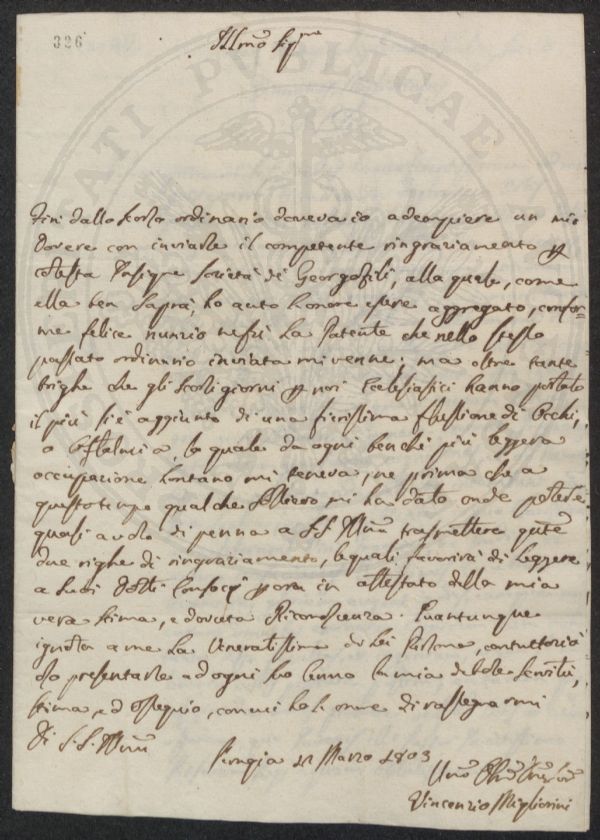 326
Illmo Sigre
Fin dallo scorso ordinario doveva io adempiere un mio
dovere con inviarle il competente ringraziamento p
cotesta Insigne Società di Georgofili, alla quale, come
ella ben saprà, ho auto l'onore essere aggregato, confor-
me felice nunzio ne fù la Patente che nello stesso
passato ordinario inviata mi venne; ma oltre tante
brighe che gli scorsi giorni p noi Ecclesiastici hanno portato
il più si è aggiunto di una fierissima flussione di Occhi,
o Oftalmia, la quale da ogni benchè più leggera
occupazione lontano mi teneva, ne prima che a
questo tempo qualche sollievo mi ha dato onde potessi
quasi a volo di penna a S.S. Illma trasmettere queste
due righe di ringraziamento, le quali favorirà di leggere
a suoi dotti Consocj p ora in attestato della mia
vera stima, e dovuta Riconoscenza. Quantunque
ignota a me la Veneratissima di Lei Persona, contuttociò
oso presentarle ad ogni suo cenno la mia debole servitù,
stima, ed ossequio, con cui ho l'onore di rassegnarmi
Di S.S. Illma
Marzo 1803
Umo
Vincenzio Migliorini
PUBLICAE